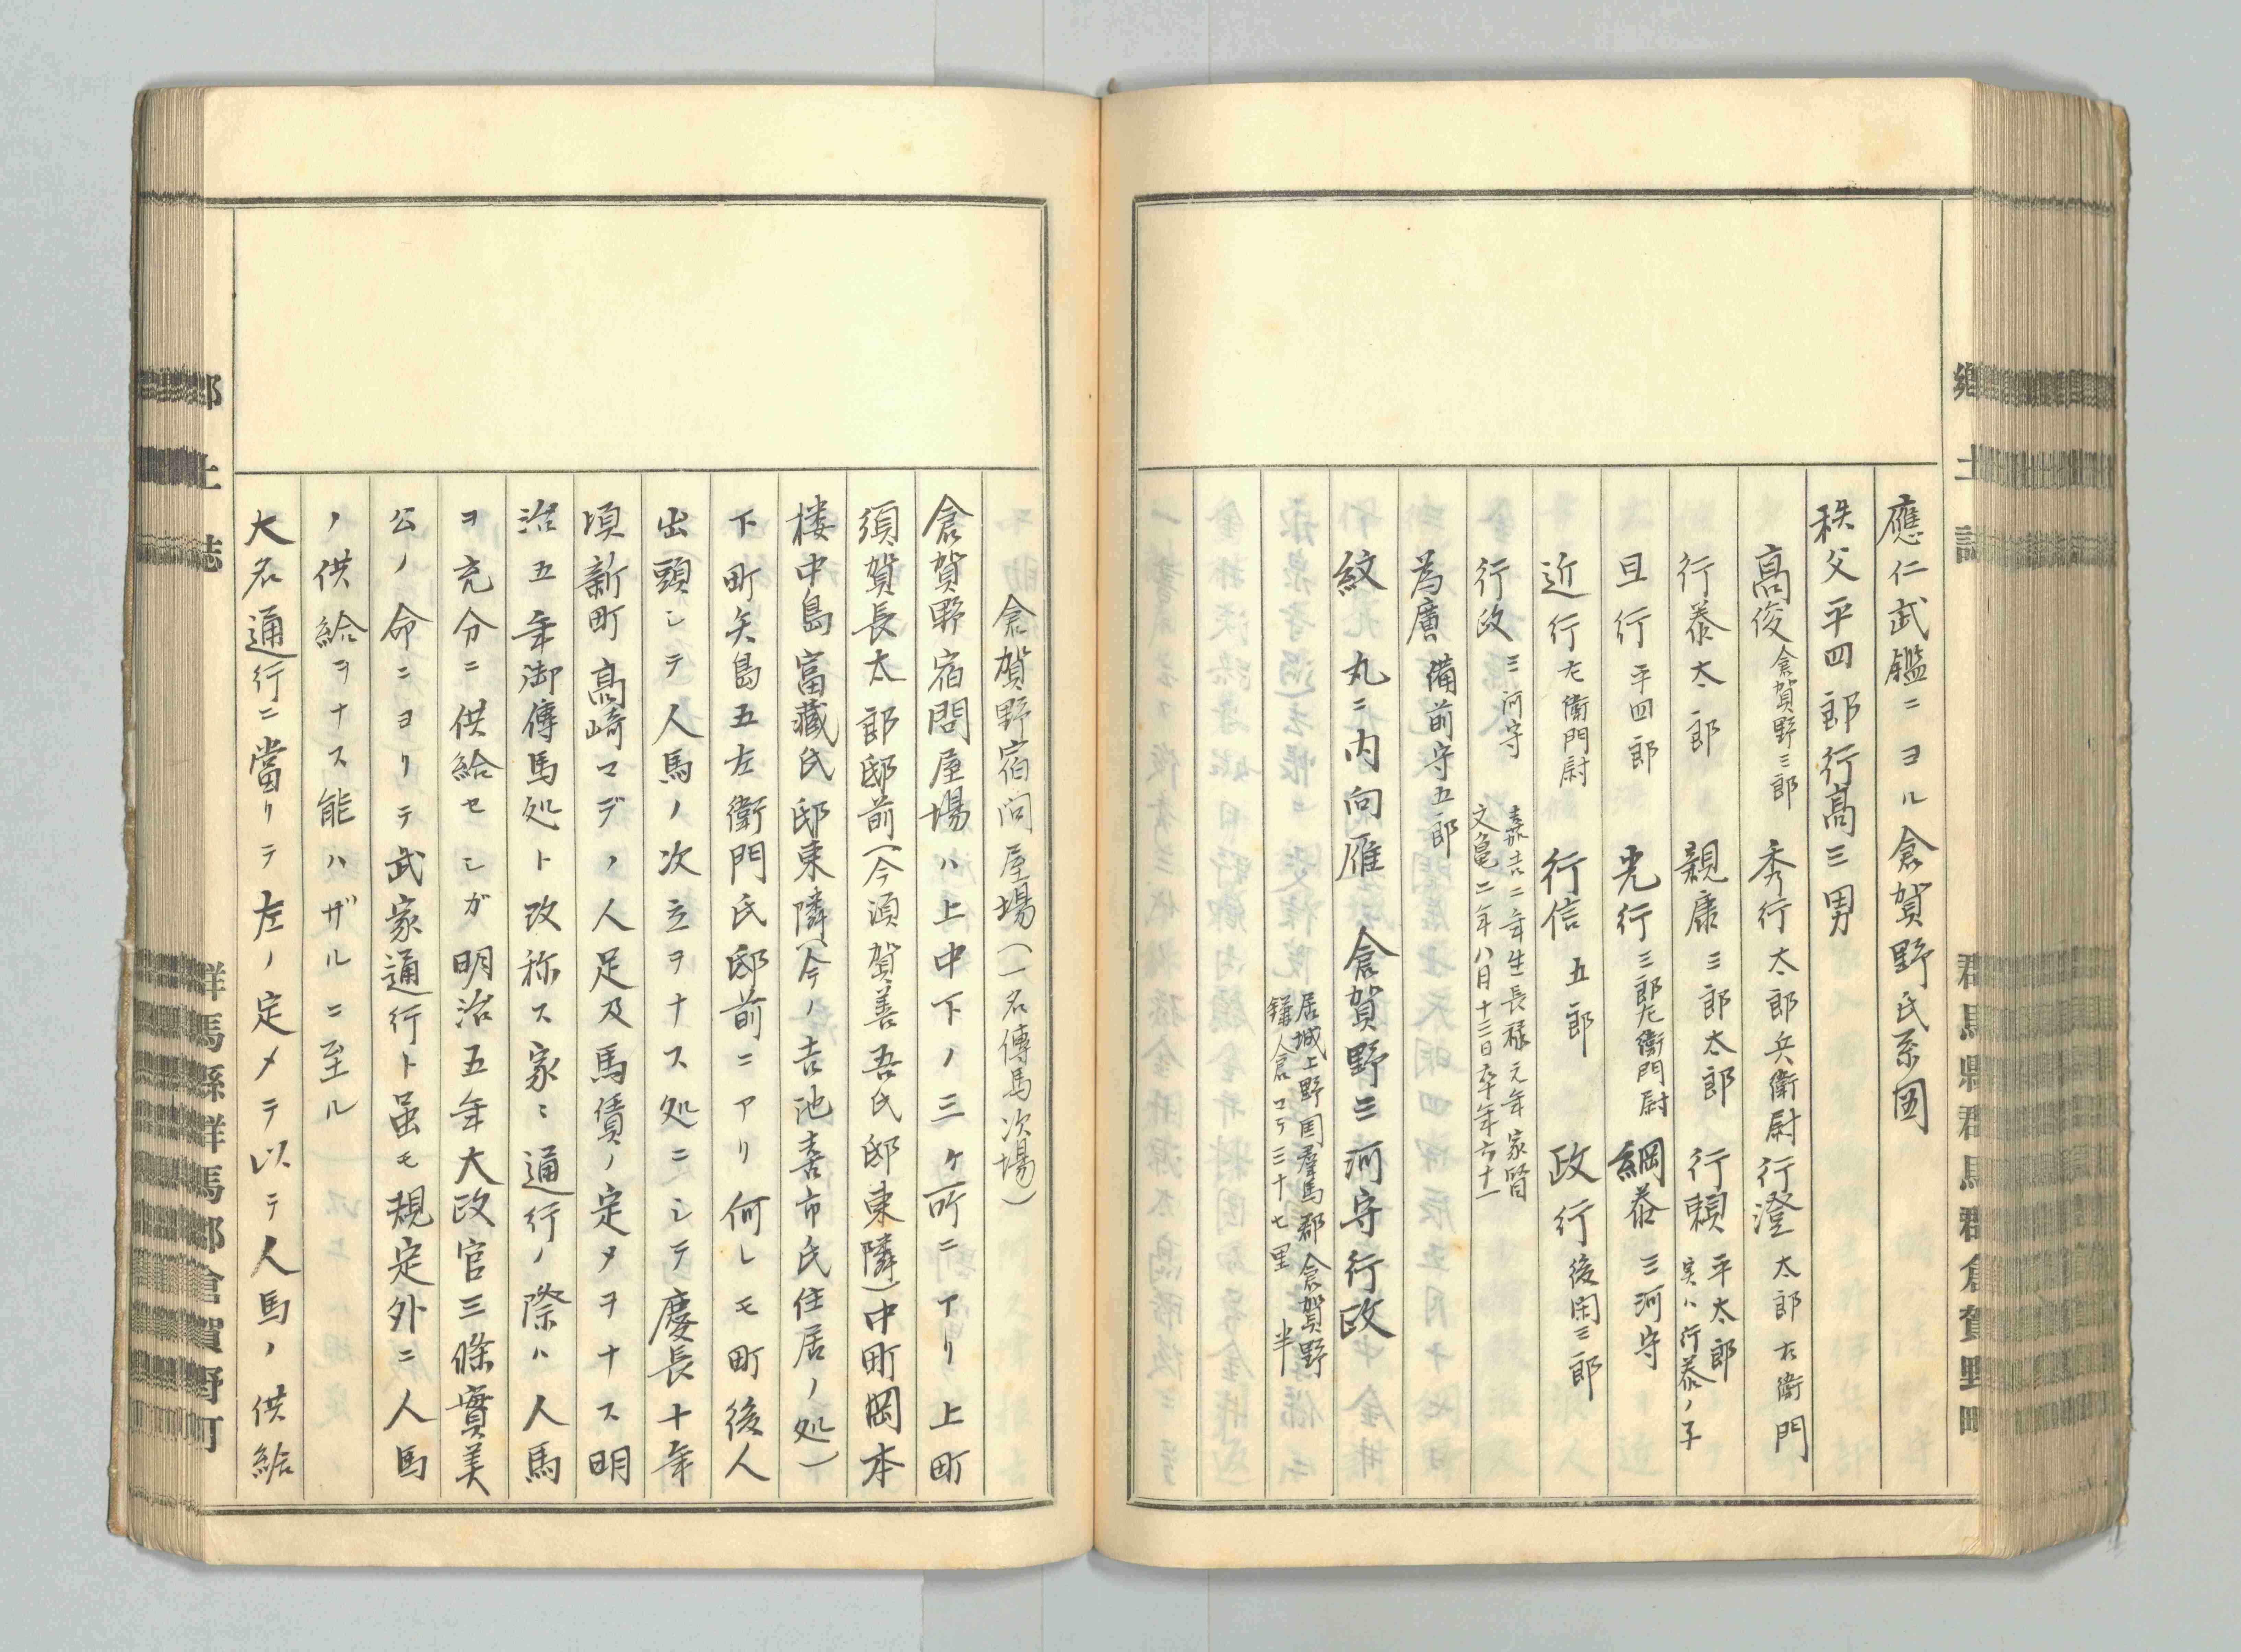 鄉土誌
群馬縣群馬郡倉賀野町
應仁武鑑ニヨル倉賀野氏系図
秩父平四郎行高三男
高俊 倉賀野三郎 秀行 太郎兵衛尉 行澄 太郎右衛門
行泰 太郎 親康 三郎太郎 行賴 平太郎 実ハ行泰ノ子
旦行 平四郎 光行 三郎左衛門尉 綱泰 三河守
近行 左衛門尉 行信 五郎 政行 後閑三郎
行政 三河守 嘉吉二年生長禄元年家督
文亀二年八月十三日卒年六十一
為廣 備前守五郎
紋 丸ニ内向雁 倉賀野三河守行政
居城上野国羣馬郡倉賀野
鎌倉ヨリ三十七里半
倉賀野宿问屋場(一名傳馬次場)
倉賀野宿問屋場ハ上中下ノ三ケ所ニアリ上町
須賀長太郎邸前(今須賀善吾氏邸東隣)中町岡本
楼中島富藏氏邸東隣(今ノ吉池喜市氏住居ノ処)
下町矢島五左衛門氏邸前ニアリ何レモ町後人
出頭シテ人馬ノ次立ヲナス処ニシテ慶長十年
頃新町高崎マデノ人足及馬賃ノ定メヲナス明
治五年御傳馬処ト改称ス家ニ通行ノ際ハ人馬
ヲ充分ニ供給セシガ明治五年大政官三條實美
公ノ命ニヨリテ武家通行ト虽モ規定外ニ人馬
ノ供給ヲナス能ハザルニ至ル
大名通行ニ當リテ左ノ定メテ以テ人馬ノ供給
郷土誌
群馬縣群馬郡倉賀野町